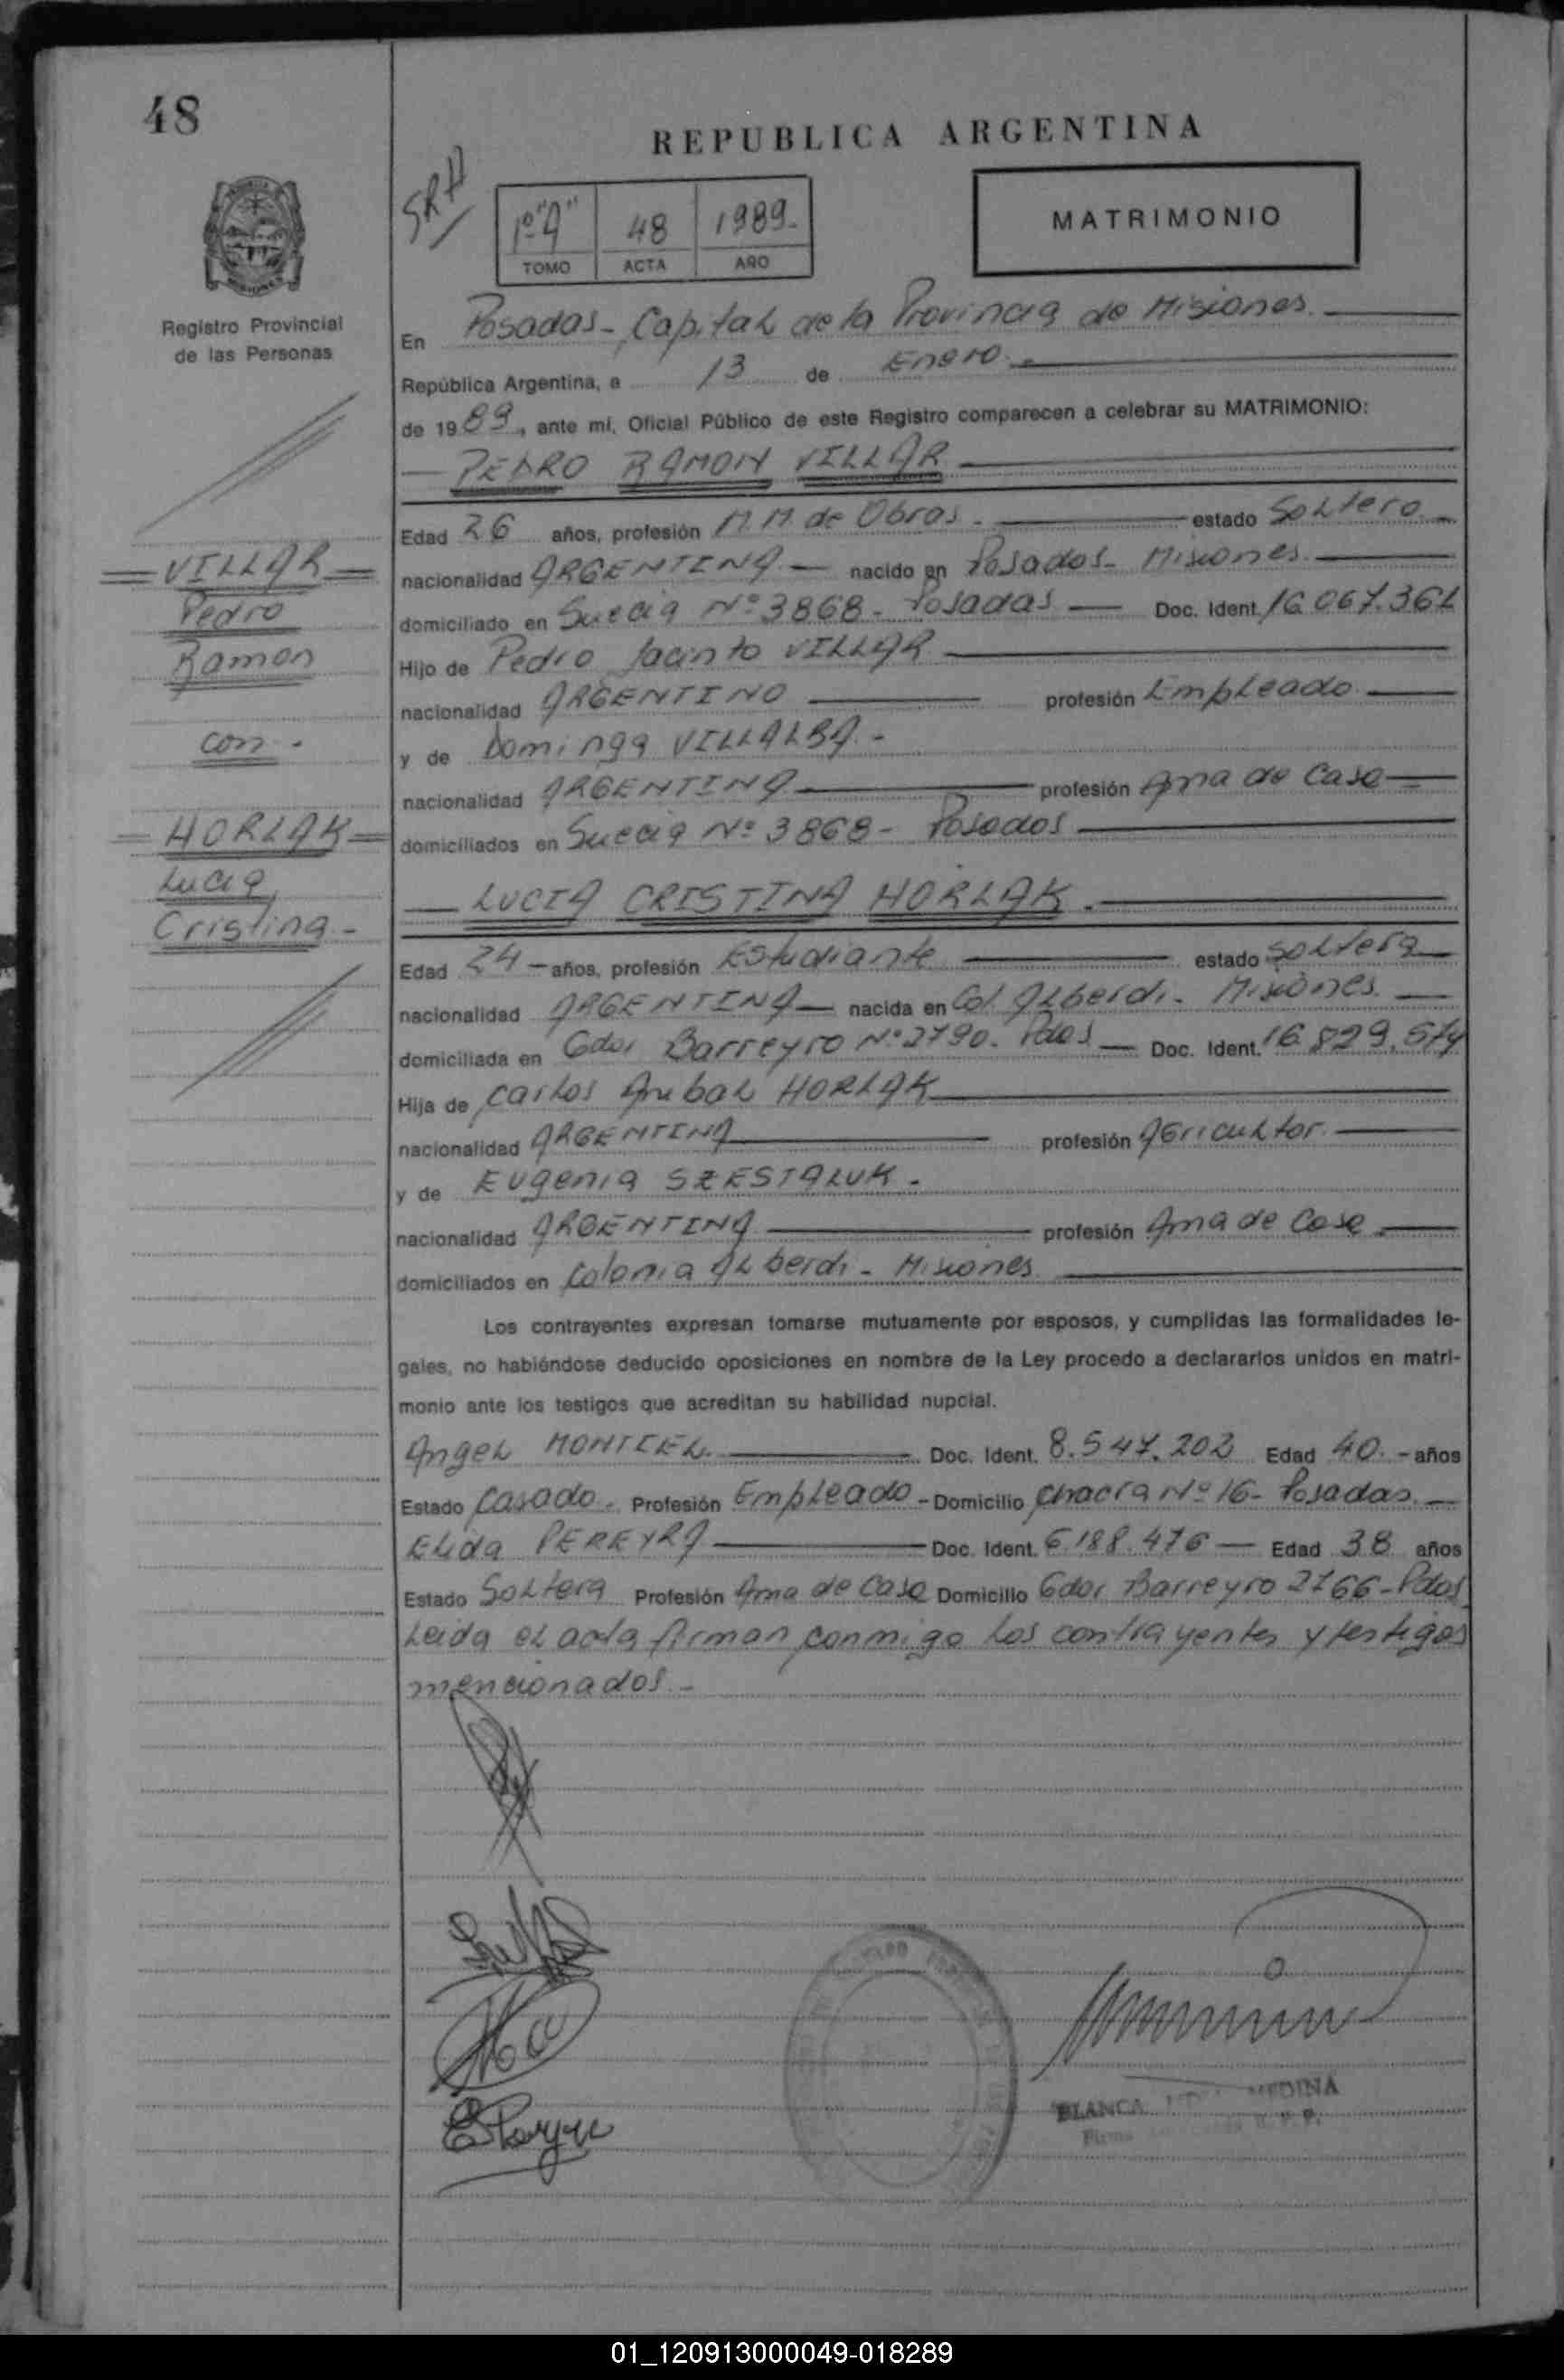 48
REPUBLICA ARGENTINA
SRH
1º "A" 48 1989-
TOMO ACTA AÑO
MATRIMONIO
Registro Provincial
de las Personas
En Posadas-, Capital de la Provincia de Misiones.
República Argentina, a 13 de Enero.-
de 1989, ante mí, Oficial Público de este Registro comparecen a celebrar su MATRIMONIO:
PEDRO RAMON VILLAR
Edad 26 años, profesión M.M. de Obras.- estado Soltero.-
VILLAR
nacionalidad ARGENTINA- nacido en Posadas- Misiones.
Pedro
domiciliado en Suecia Nº 3868- Posadas- Doc. Ident. 16.067.361
Ramon
Hijo de Pedro Jacinto VILLAR
nacionalidad ARGENTINO profesión Empleado
con.-
y de Dominga VILLALBA.-
nacionalidad ARGENTINA profesión Ama de Casa-
HORLAK
domiciliados en Suecia Nº 3868- Posadas
Lucia
LUCIA CRISTINA HORLAK.
Cristina-
Edad 24- años, profesión Estudiante estado Soltera
nacionalidad ARGENTINA- nacida en Col. Alberdi- Misiones
domiciliada en Gdor Barreyro Nº 2790- Pdas- Doc. Ident. 16.829.574
Hija de Carlos Anibal HORLAK
nacionalidad ARGENTINA profesión Agricultor.
y de Eugenia SZESTALUK.
nacionalidad ARGENTINA profesión Ama de Casa
domiciliados en Colonia Alberdi- Misiones
Los contrayentes expresan tomarse mutuamente por esposos, y cumplidas las formalidades le-
gales, no habiéndose deducido oposiciones en nombre de la Ley procedo a declararlos unidos en matri-
monio ante los testigos que acreditan su habilidad nupcial.
Angel MONTIEL. Doc. Ident. 8.547.202 Edad 40.- años
Estado Casado. Profesión Empleado- Domicilio Chacra Nº 16- Posadas.
Elida PEREYRA Doc. Ident. 6.188.476- Edad 38 años
Estado Soltera Profesión Ama de Casa Domicilio Gdor Barreyro 2766- Pdas
Leida el acta firman conmigo los contrayentes y testigos
mencionados.-
BLANCA MEDINA
Firma
01_120913000049-018289